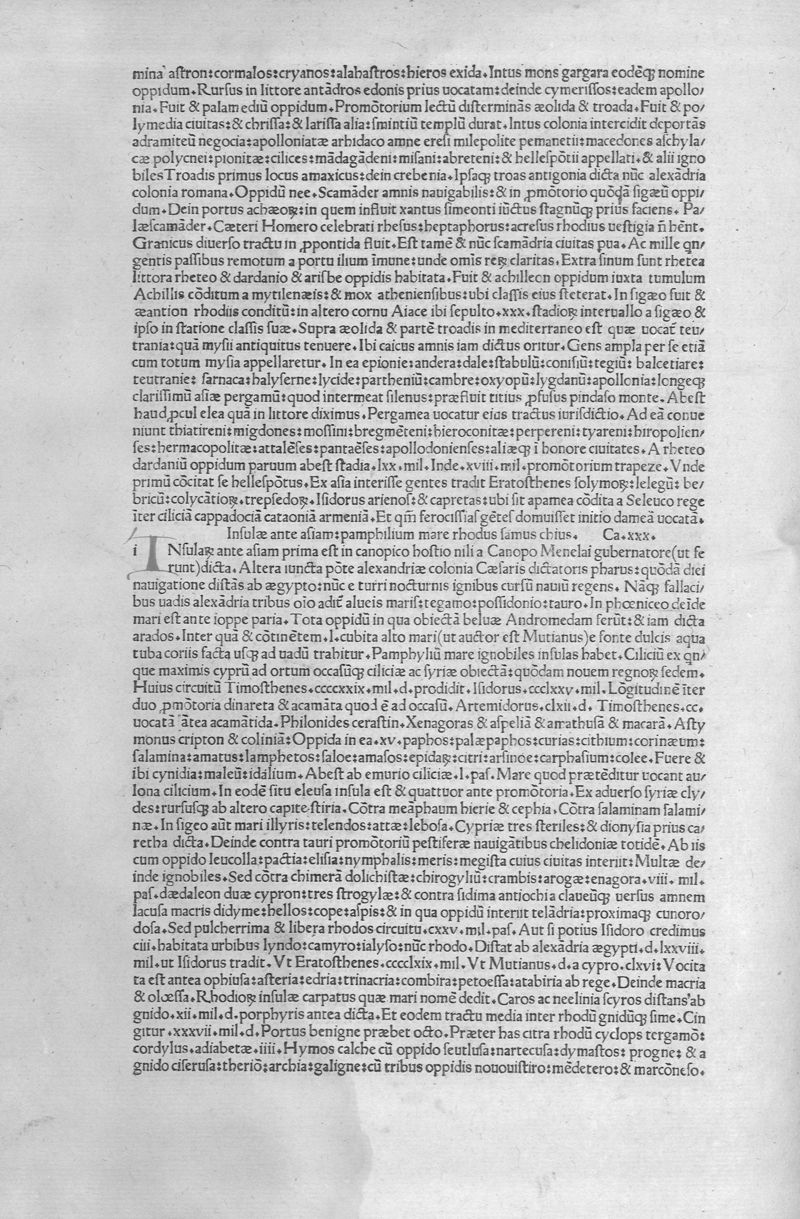 mina astron:cormalos:cryanos:alabastros:hieros exida. Intus mons gargara eodēq; nomine
oppidum. Rursus in littore antādros edonis prius uocatam:deinde cymerissos:eadem apollo/
nia. Fuit & palamediū oppidum. Promōtorium lectū disterminās æolida & troada. Fuit & po/
lymedia ciuitas:& chrissa:& larissa alia:smintiū templū durat. Intus colonia intercidit deportās
adramiteū negocia:apolloniatæ arhidaco amne eresi milepolite pemanetii:macedones aschyla/
cæ polycnei:pionitæ:cilices:mādagādeni:misani:abreteni:& hellespōtii appellati. & alii igno
biles Troadis primus locus amaxicus:dein crebenia. Ipsaq; troas antigonia dicta nūc alexādria
colonia romana. Oppidū nee. Scamāder amnis nauigabilis:& in ꝓmōtorio quōdā sigæū oppi/
dum. Dein portus achæoꝝ:in quem influit xantus simeonti iūctus stagnūq; prius faciens. Pa/
læscamāder. Cæteri Homero celebrati rhesus:heptaphorus:acresus rhodius uestigia ñ hēnt.
Granicus diuerso tractu in ꝓpontida fluit. Est tamē & nūc scamādria ciuitas pua. Ac mille qn/
gentis passibus remotum a portu ilium īmune:unde omīs reꝝ claritas. Extra sinum sunt rhetea
littora rheteo & dardanio & arisbe oppidis habitata. Fuit & achilleon oppidum iuxta tumulum
Achillis cōditum a mytilenæis:& mox atheniensibus:ubi classis eius steterat. In sigæo fuit &
æantion rhodiis conditū:in altero cornu Aiace ibi sepulto.xxx.stadioꝝ interuallo a sigæo &
ipso in statione classis suæ. Supra æolida & partē troadis in mediterraneo est quæ uocat̄ teu/
trania:quā mysii antiquitus tenuere. Ibi caicus amnis iam dictus oritur. Gens ampla per se etiā
cum totum mysia appellaretur. In ea epionie:andera:dale:stabulū:conisiū:tegiū: balcetiare:
teutranie: sarnaca:halyserne:lycide:partheniū:cambre:oxyopū:lygdanū:apollonia:longeq;
clarissimū asiæ pergamū:quod intermeat silenus:præfluit titius ꝓfusus pindaso monte. Abest
haud ꝓcul elea quā in littore diximus. Pergamea uocatur eius tractus iurisdictio. Ad eā conue
niunt thiatireni:migdones:mossini:bregmēteni:hieroconitæ:perpereni:tyareni:hiropolien/
ses:hermacopolitæ:attalēses:pantaēses:apollodonienses:aliæq; ī honore ciuitates. A rheteo
dardaniū oppidum paruum abest stadia.lxx.mil. Inde.xviii.mil.promōtorium trapeze. Vnde
primū cōcitat se hellespōtus. Ex asia interisse gentes tradit Eratosthenes solymoꝝ:lelegū: be/
bricū:colycātioꝝ.trepsedoꝝ. Isidorus arienos:& capretas:ubi sit apamea cōdita a Seleuco rege
īter ciliciā cappadociā cataoniā armeniā. Et qm̄ ferocissias gētes domuisset initio dameā uocatā.
Insulæ ante asiam:pamphilium mare rhodus samus chius. Ca.xxx.
i INsulaꝝ ante asiam prima est in canopico hostio nili a Canopo Menelai gubernatore(ut fe
runt)dicta. Altera iuncta pōte alexandriæ colonia Cæsaris dictatoris pharus:quōdā diei
nauigatione distās ab ægypto:nūc e turri nocturnis ignibus cursū nauiū regens. Nāq; fallaci/
bus uadis alexādria tribus oīo adit̄ alueis maris:tegamo:possidonio:tauro. In phœniceo deīde
mari est ante ioppe paria. Tota oppidū in qua obiectā beluæ Andromedam ferūt:& iam dicta
arados. Inter quā & cōtinētem.l.cubita alto mari(ut auctor est Mutianus)e fonte dulcis aqua
tuba coriis facta usq; ad uadū trahitur. Pamphyliū mare ignobiles insulas habet. Ciliciū ex qn/
que maximis cyprū ad ortum occasūq; ciliciæ ac syriæ obiectā:quōdam nouem regnoꝝ sedem.
Huius circuitū Timosthenes.ccccxxix.mil.d.prodidit. Isidorus.ccclxxv.mil. Lōgitudinē īter
duo ꝓmōtoria dinareta & acamāta quod ē ad occasū. Artemidorus.clxii.d. Timosthenes.cc.
uocatā ātea acamātida. Philonides cerastin. Xenagoras & aspeliā & amathusā & macarā. Asty
monus cripton & coliniā:Oppida in ea.xv.paphos:palæpaphos:curias:cithium:corinæum:
salamina:amatus:lamphetos:saloe:amasos:epidaꝝ:citri:arsinoe:carphasium:colee. Fuere &
ibi cynidia:maleū:idalium. Abest ab emurio ciliciæ.l.pas. Mare quod prætēditur uocant au/
lona cilicium. In eodē situ eleusa insula est & quattuor ante promōtoria. Ex aduerso syriæ cly/
des:rursusq; ab altero capite stiria. Cōtra meāphaum hierie & cephia. Cōtra salaminam salami/
næ. In sigeo aūt mari illyris:telendos:attæ:lebosa. Cypriæ tres steriles:& dionysia prius ca/
retha dicta. Deinde contra tauri promōtoriū pestiferæ nauigātibus chelidoniæ totidē. Ab iis
cum oppido leucolla:pactia:elisia:nymphalis:meris:megista cuius ciuitas interiit:Multæ de/
inde ignobiles. Sed cōtra chimerā dolichistæ:chirogyliū:crambis:arogæ:enagora.viii. mil.
pas.dædaleon duæ cypron:tres strogylæ:& contra sidima antiochia claueūq; uersus amnem
lacusa macris didyme:hellos:cope:aspis:& in qua oppidū interiit telādria:proximaq; cunoro/
dosa. Sed pulcherrima & libera rhodos circuitu.cxxv.mil.pas. Aut si potius Isidoro credimus
ciii.habitata urbibus lyndo:camyro:ialyso:nūc rhodo. Distat ab alexādria ægypti.d.lxxviii.
mil.ut Isidorus tradit. Vt Eratosthenes.cccclxix.mil. Vt Mutianus.d.a cypro.clxvi:Vocita
ta est antea ophiusa:asteria:edria:trinacria:combira:petoessa:atabiria ab rege. Deinde macria
& olœssa. Rhodioꝝ insulæ carpatus quæ mari nomē dedit. Caros ac neelinia scyros distans ab
gnido.xii.mil.d.porphyris antea dicta. Et eodem tractu media inter rhodū gnidūq; sime. Cin
gitur.xxxvii.mil.d. Portus benigne præbet octo. Præter has citra rhodū cyclops tergamō:
cordylus.adiabetæ.iiii. Hymos calche cū oppido seutlusa:nartecusa:dymastos: progne: & a
gnido ciserusa:theriō:archia:galigne:cū tribus oppidis nououistiro:mēdetero:& marcōneso.